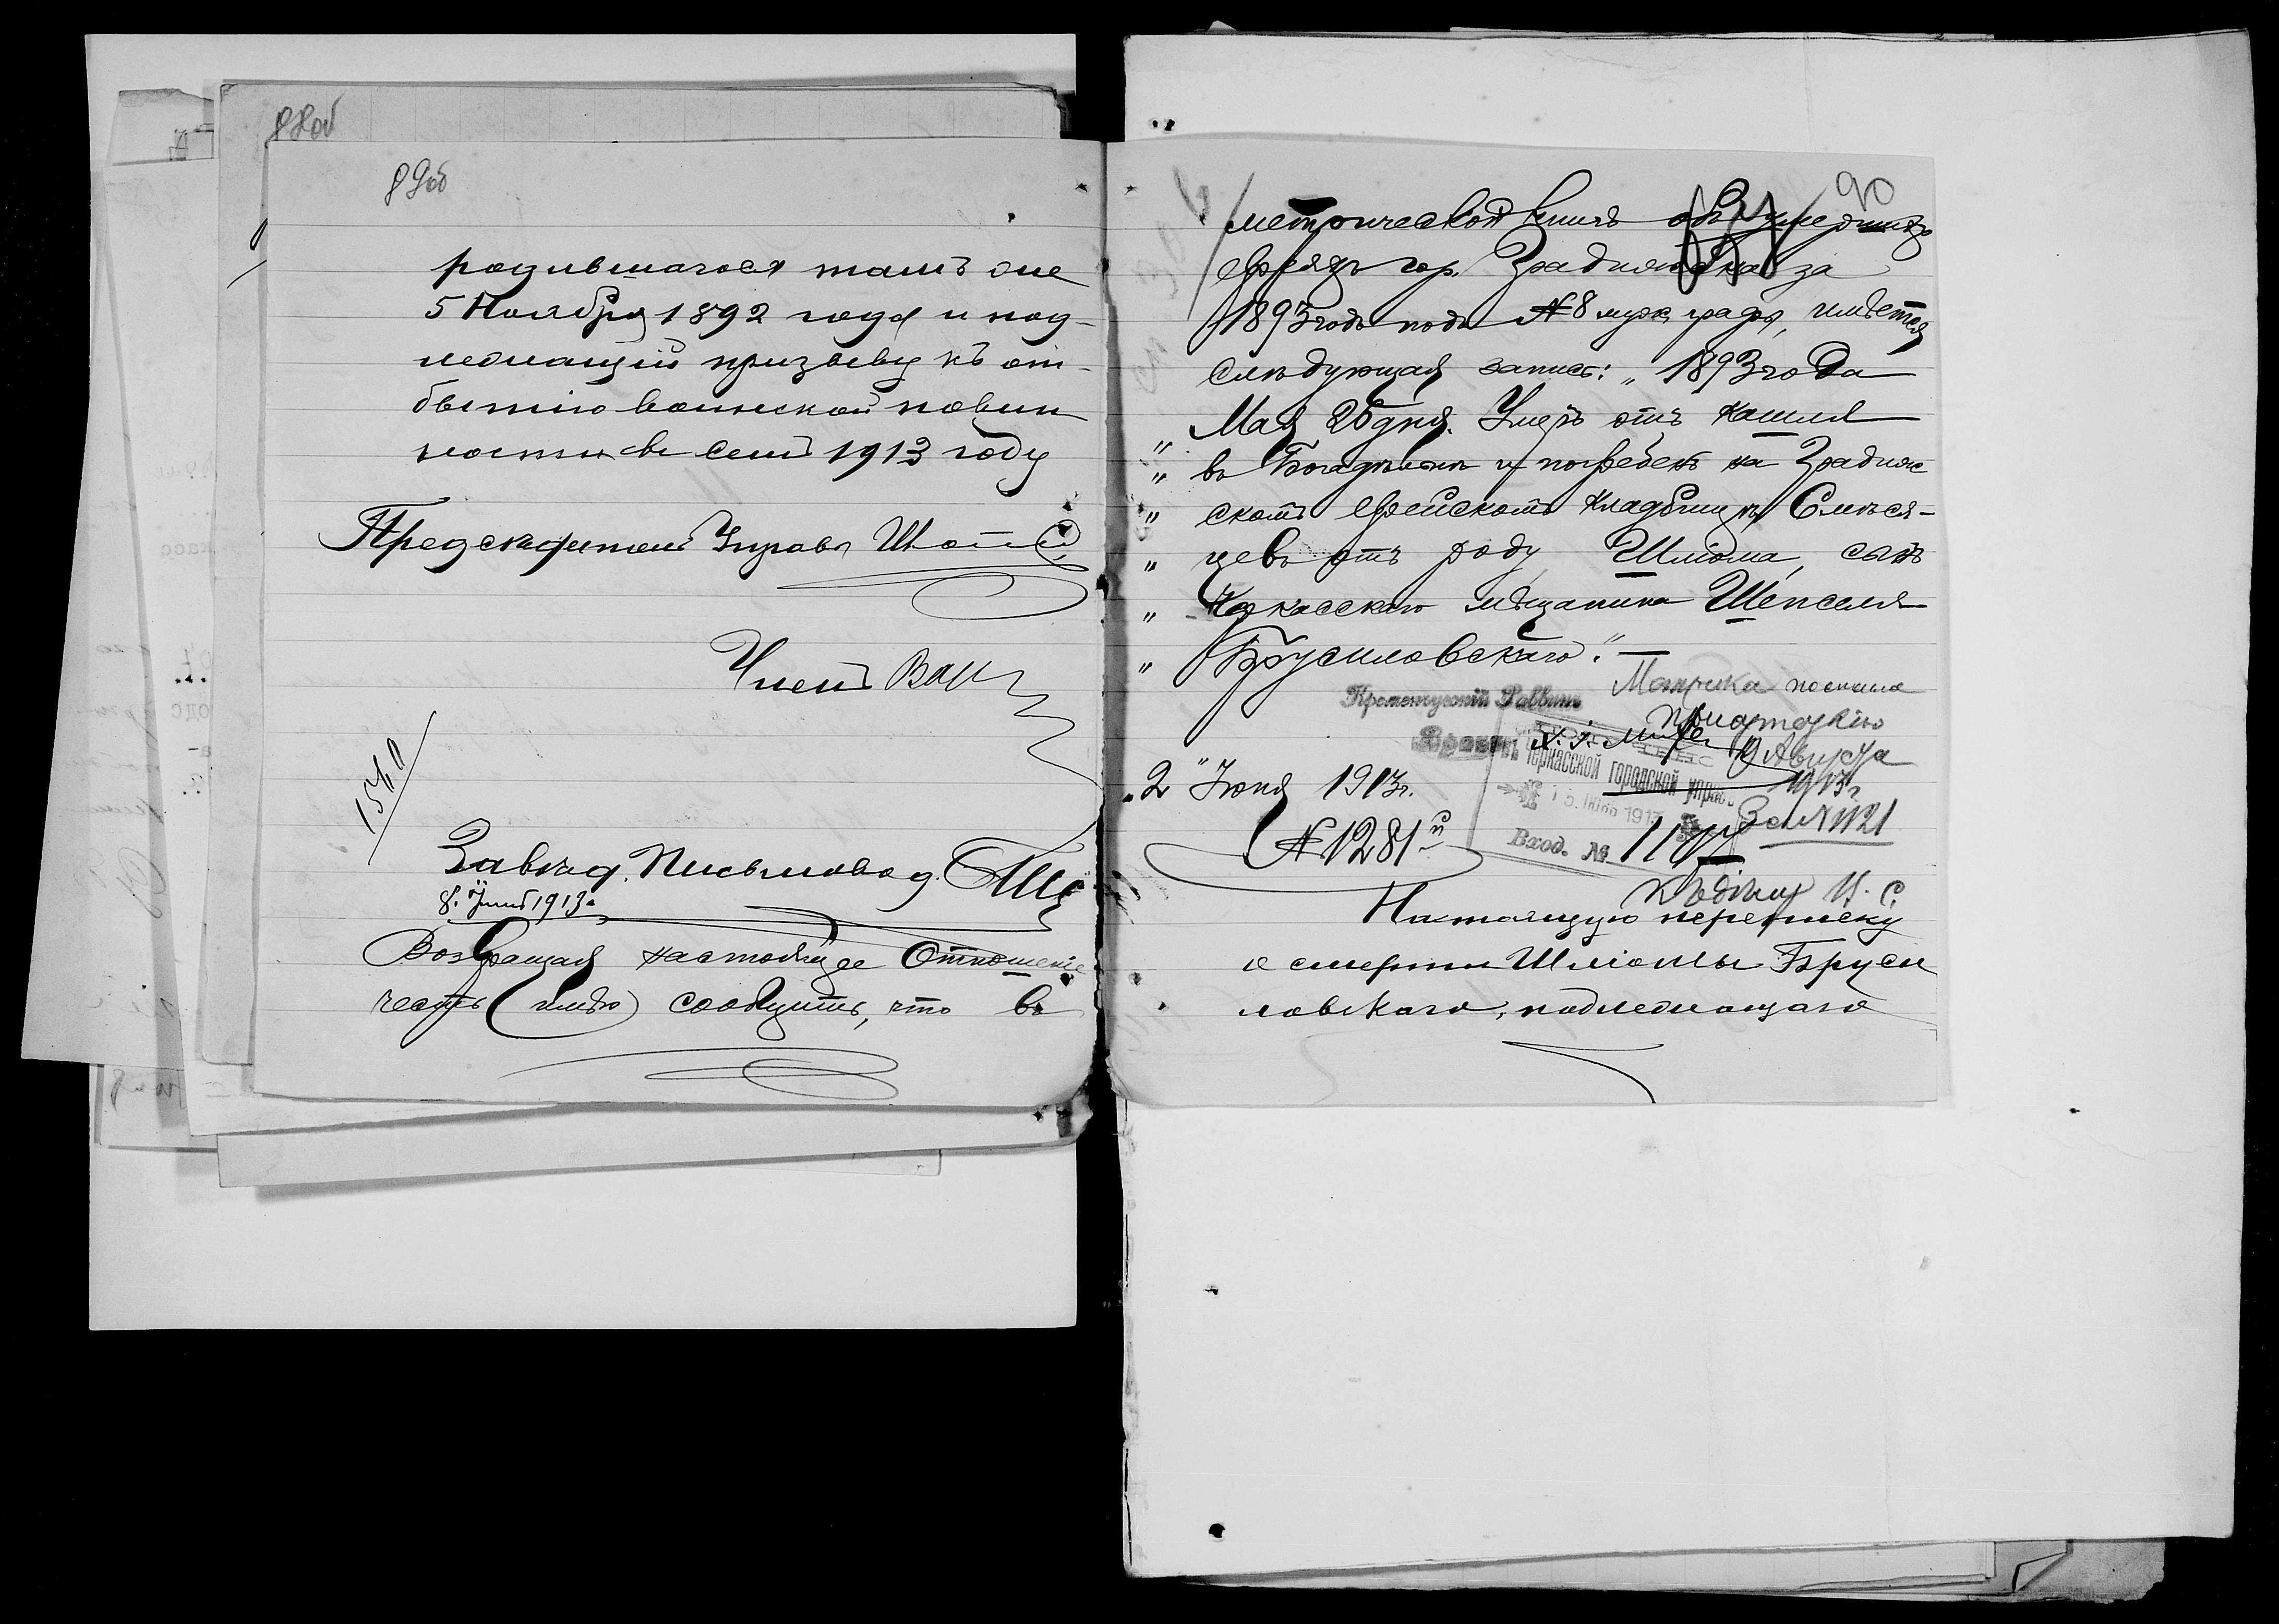 88об
89об
родившагося тамъ же
5 Ноября 1892 года и под-
лежащій призыву къ от-
бытію воинской повин
ности въ семъ 1913 году
Предсѣдатель Управы
Членъ
1540
Завѣд. Письмовод.
8. Іюня 1913 г.
Возвращая настоящее Отношеніе
честь имѣю сообщить, что въ
90
метрической книгѣ объ умершихъ
евреяхъ гор. Градижска за
1893 годъ подъ № 8 муж. графы, имѣется
слѣдующая запись: „1893 года
„ Мая 25 дня. Умеръ отъ кашля
„ въ Богадѣльнѣ и погребенъ на Градиж
„ скомъ еврейскомъ кладбищѣ 6 мѣся-
„ цевъ отъ роду Шліома, сынъ
„ Черкасскаго мѣщанина Шепселя
„ Брусиловскаго.“
Метрика послана
Кременчугскій Раввинъ
9 Августа
1913 г
За № 1121
Черкасской городской управ
15 Іюнь 1913
Вход. №
„2" Іюня 1913 г.
№ 1281
Къ дѣлу
Настоящую переписку
о смерти Шліомы Бруси
ловскаго, подлежащаго